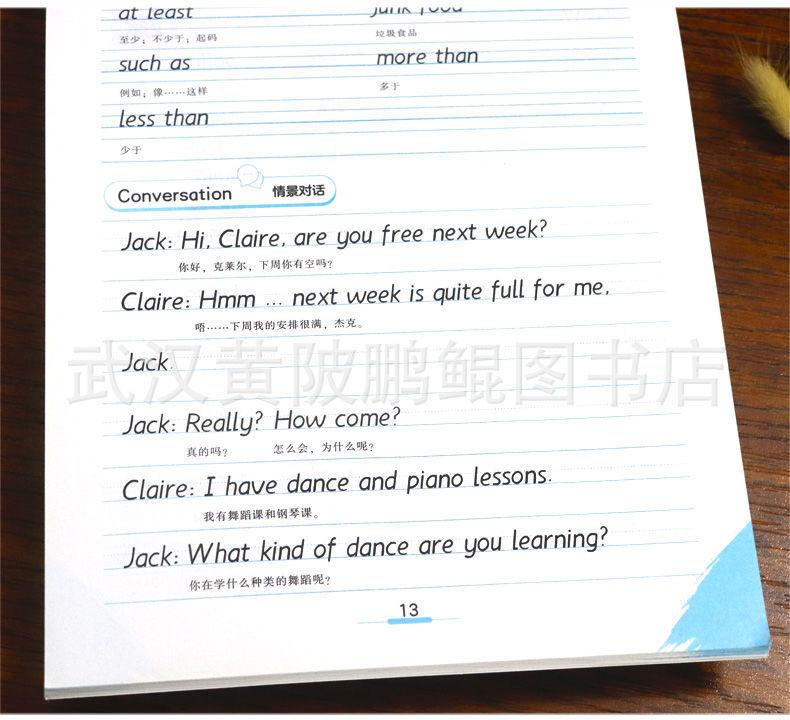 at least junk food
至少；不少于；起码 垃圾食品
such as more than
例如；像……这样 多于
less than
少于
Conversation 情景对话
Jack: Hi, Claire, are you free next week?
你好，克莱尔，下周你有空吗？
Claire: Hmm … next week is quite full for me,
唔……下周我的安排很满，杰克。
Jack.
武汉黄陂鹏鲲图书店
Jack: Really? How come?
真的吗？ 怎么会，为什么呢？
Claire: I have dance and piano lessons.
我有舞蹈课和钢琴课。
Jack: What kind of dance are you learning?
你在学什么种类的舞蹈呢？
13